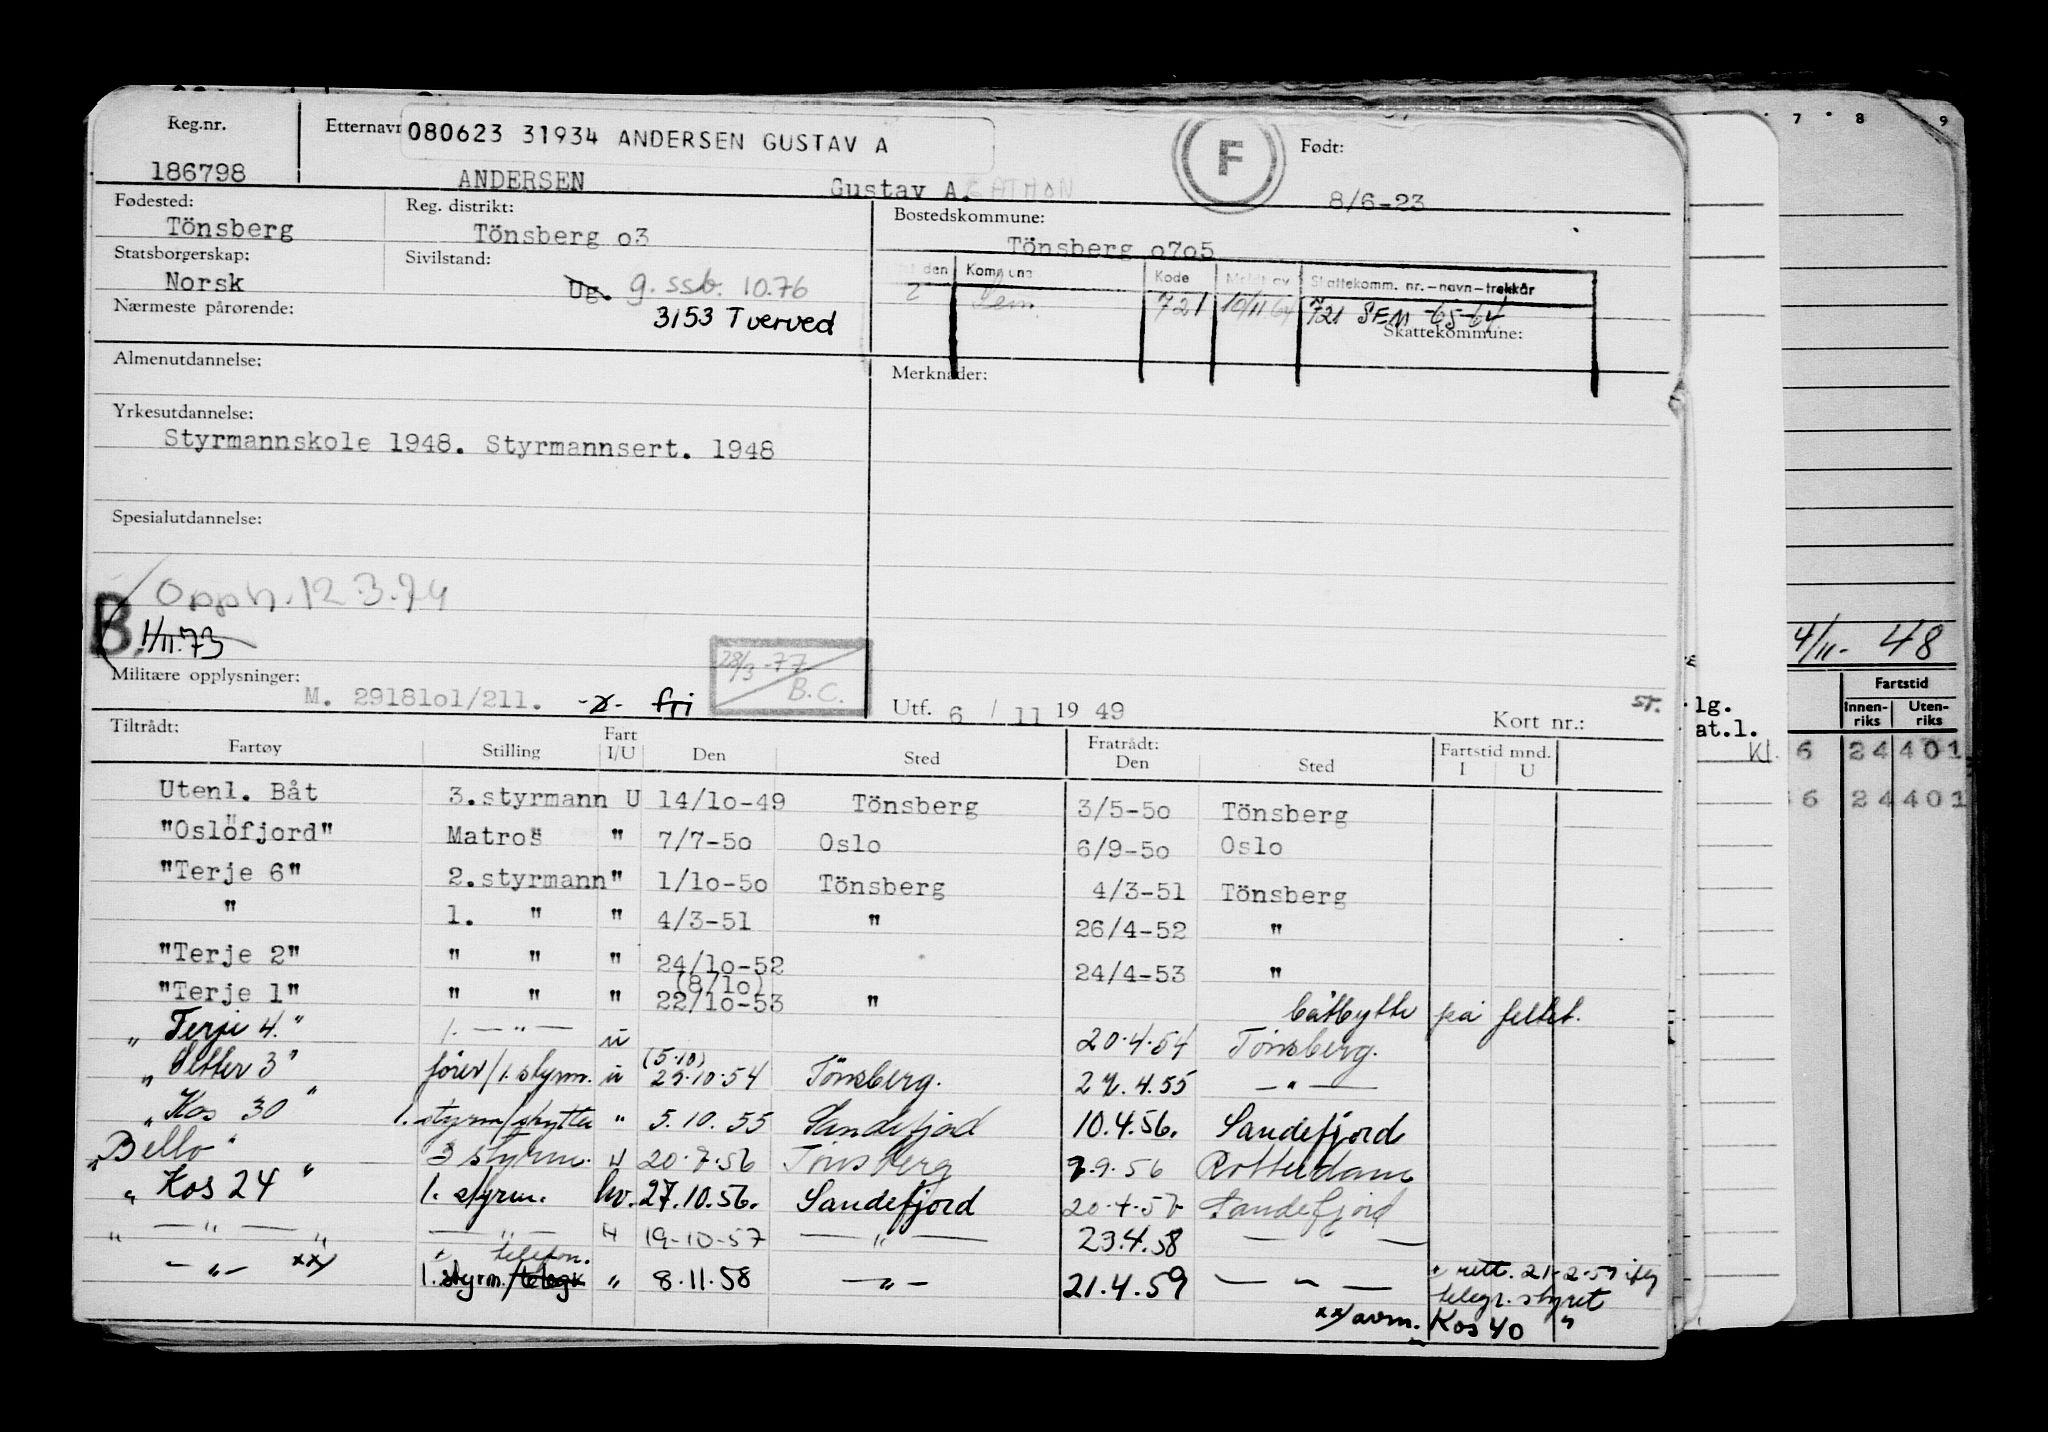 Reg.nr. Etternavn 080623 31934 ANDERSEN GUSTAV A F Født:
186798 ANDERSEN Gustav A. GATHON 8/6-23
Fødested: Reg. distrikt: Bostedskommune:
Tönsberg Tönsberg o3 Tönsberg o7o5
Statsborgerskap: Sivilstand:
Norsk Ug. g. ssb. 10.76
den Kommune Kode Meldt av Skattekomm. nr.-navn-trekkår
2 Sem 721 10/11 64 721 SEM -65-64
Nærmeste pårørende: 3153 Tverved Skattekommune:
Almenutdannelse: Merknader:
Yrkesutdannelse:
Styrmannskole 1948. Styrmannsert. 1948
Spesialutdannelse:
Opph. 12.3.74
B 1/11.73
28/3-77
B.C.
Militære opplysninger: M. 29181o1/211. -x- fri Utf. 6 / 11 19 49 Kort nr.: ST.
Tiltrådt: Fratrådt:
Fartøy Stilling Fart I/U Den Sted Den Sted Fartstid mnd. I U
Utenl. Båt 3.styrmann U 14/1o-49 Tönsberg 3/5-5o Tönsberg
"Oslöfjord" Matros " 7/7-5o Oslo 6/9-5o Oslo
"Terje 6" 2.styrmann " 1/1o-5o Tönsberg 4/3-51 Tönsberg
" 1. " " 4/3-51 " 26/4-52 "
"Terje 2" " " " 24/1o-52 24/4-53 "
"Terje 1" " " " (8/1o) 22/1o-53 " båtbytte på feltet.
"Terje 4." 1. — " — u 20.4.54 Tönsberg.
"Setter 3" förer/1.styrm. u (5.10) 25.10.54 Tönsberg. 22.4.55 — " —
"Kos 30" 1.styrm/skytter " 5.10.55 Sandefjord 10.4.56. Sandefjord
"Bello" 3 styrm. H 20.7.56 Tönsberg 7.9.56 Rotterdam
"Kos 24" 1. styrm. hv. 27.10.56. Sandefjord 20.4.57 Sandefjord
" — " — " — " — H 19-10-57 — " — 23.4.58 — " —
— " — xx/ 1. styrm./telegr. telefon. " 8.11.58 — " — 21.4.59 — " — rett. 21-2-59 ifly
telegr. styret
xx/avm. Kos 40 "
7 8 9
4/11- 48
Fartstid
Innen-riks Uten-riks
lg.
at.l.
Kl. 6 24 401
6 24 401